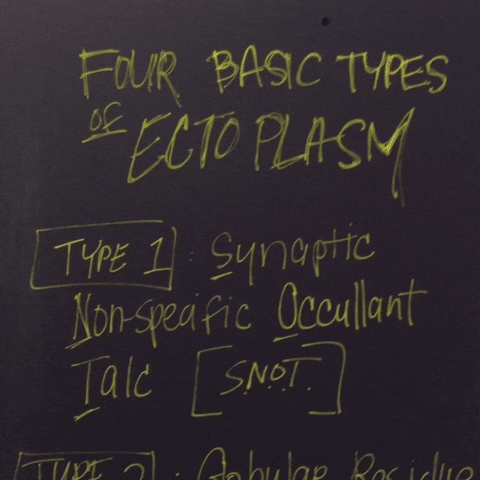 FOUR BASIC TYPES
OF ECTOPLASM
TYPE 1 : Synaptic
Non-specific Occullant
Talc [S.N.O.T.]
TYPE 2 : Globular Residue